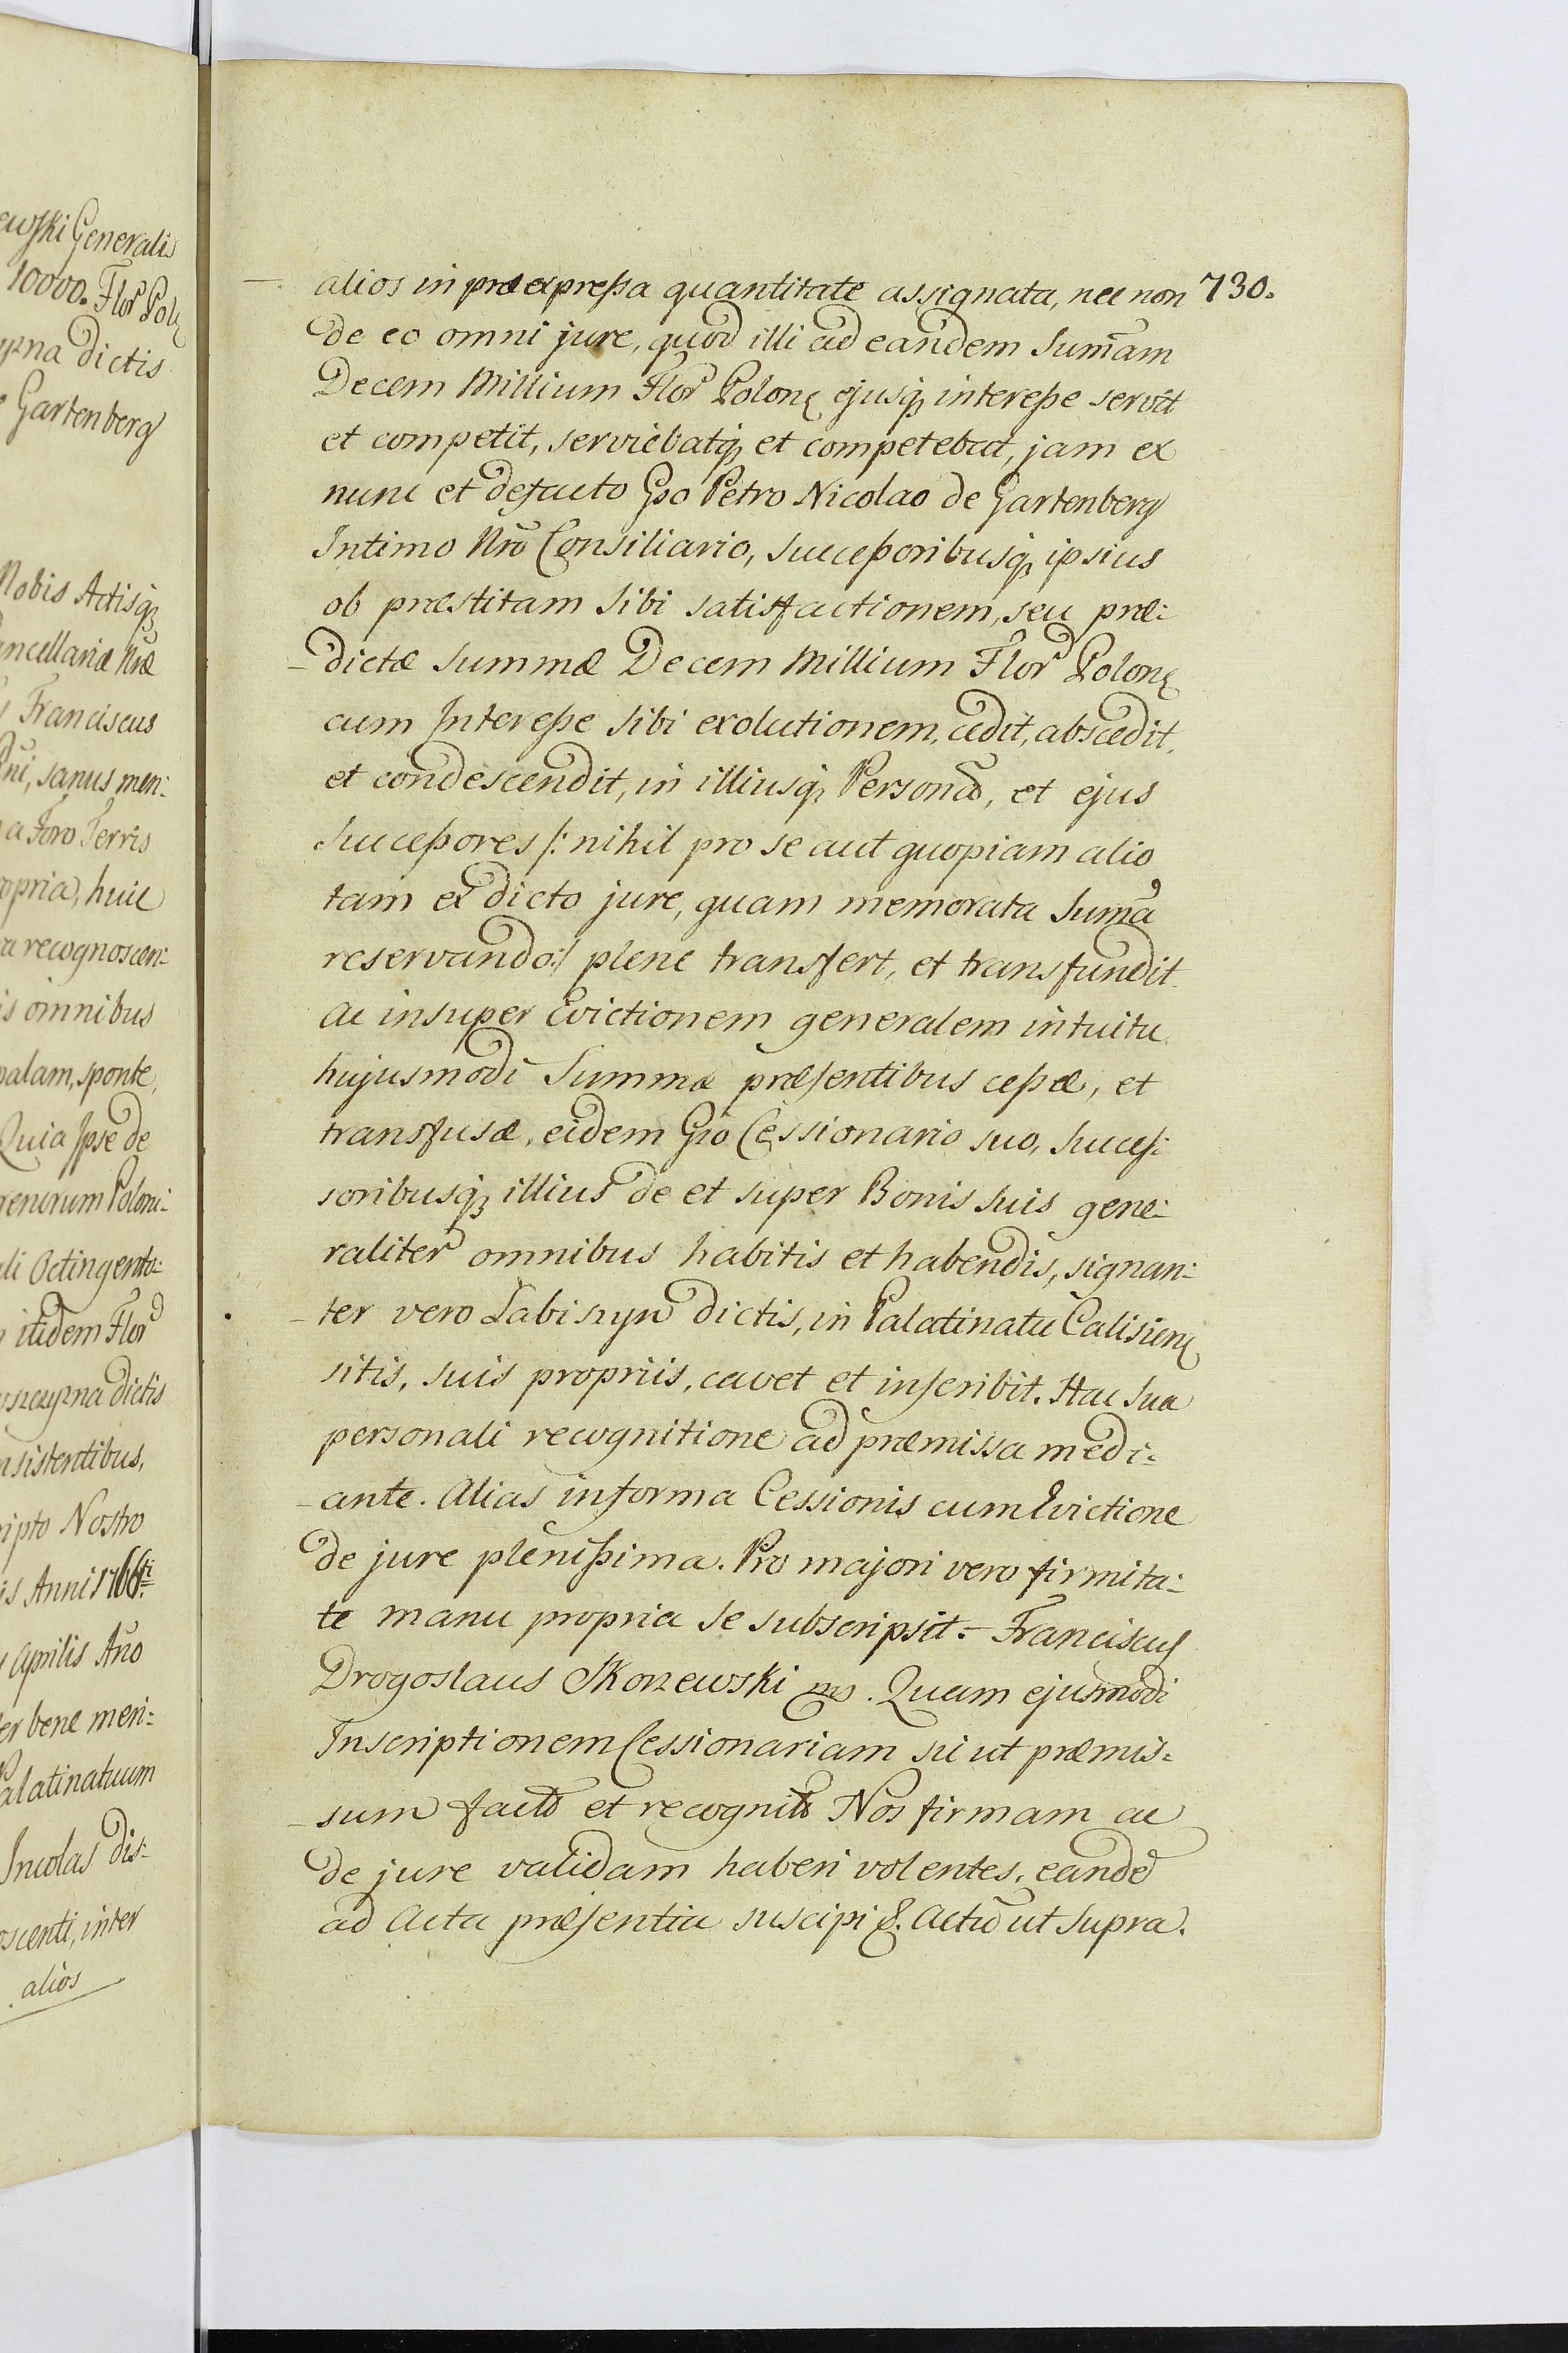 ewski Generalis
10000. Flor Pol
yzna dictis
Gartenberg
Nobis Actisq
ancellariæ Nræ
Franciscus
Dni, sanus men:
a Foro Terris
opria, huic
a recognoscen:
is omnibus
palam, sponte,
Quia Ipse de
renorum Poloni:
li Octingento:
itidem Flor
oszczyzna dictis
nsistentibus,
ripto Nostro
is Anni 1766ti
Aprilis Año
er bene meri:
Palatinatuum
Incolas dis:
oscenti, inter
alios
alios in præexpressa quantitate assignata, nec non 730.
de eo omni jure, quod illi ad eandem Sumam
Decem Millium Flor Polon ejusq interesse servit
et competit, serviebatq et competebat, jam ex
nunc et defacto Gso Petro Nicolao de Gartenberg
Intimo Nro Consiliario, Successoribusq ipsius
ob præstitam sibi satisfactionem, seu præ:
dictæ Summæ Decem Millium Flor Polon
cum Interesse sibi exolutionem, cedit, abscedit,
et condescendit, in illiusq Persona, et ejus
Successores /: nihil pro se aut quopiam alio
tam ex dicto jure, quam memorata Suma
reservando :/ plene transfert, et transfundit.
Ac insuper Evictionem generalem intuitu
hujusmodi Summæ præsentibus cessæ, et
transfusæ, eidem Gso Cessionario suo, Succes:
soribusq illius de et super Bonis suis gene:
raliter omnibus habitis et habendis, signan:
ter vero Labiszyn dictis, in Palatinatu Calisien
sitis, suis propriis, cavet et inscribit. Hac sua
personali recognitione ad præmissa medi:
ante. Alias in forma Cessionis cum Evictione
de jure plenissima. Pro majori vero firmita:
te manu propria se subscripsit. Franciscus
Drogoslaus Skorzewski mp. Quam ejusmodi
Inscriptionem Cessionariam sic ut præmis:
sum facta et recognita Nos firmam ac
de jure validam haberi volentes, eande
ad Acta præsentia suscipi &. Actu ut supra.